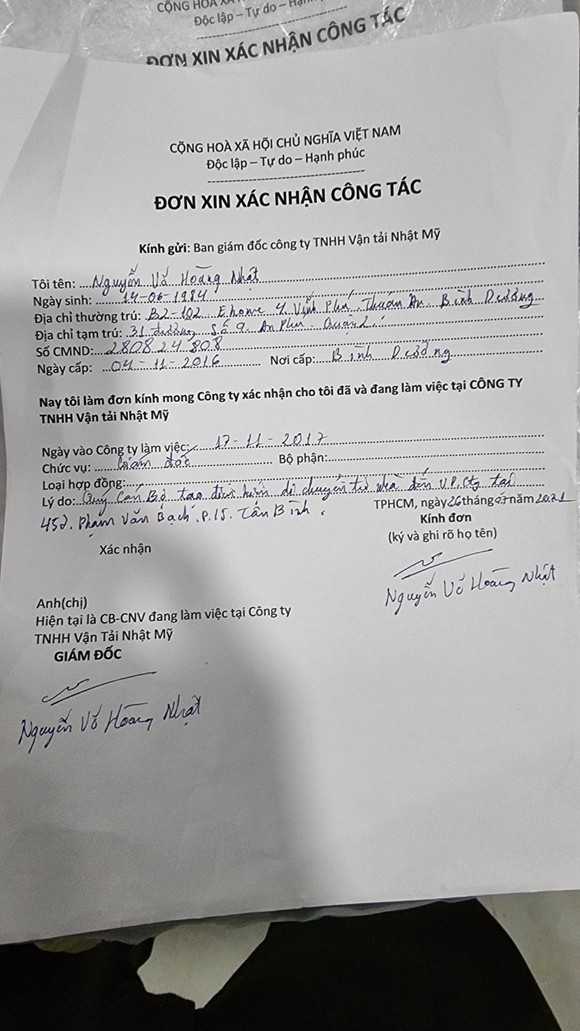 CỘNG HOÀ XÃ
Độc lập – Tự do – Hạnh
ĐƠN XIN XÁC NHẬN CÔNG TÁC
CỘNG HOÀ XÃ HỘI CHỦ NGHĨA VIỆT NAM
Độc lập – Tự do – Hạnh phúc
ĐƠN XIN XÁC NHẬN CÔNG TÁC
Kính gửi: Ban giám đốc công ty TNHH Vận tải Nhật Mỹ
Tôi tên: Nguyễn Võ Hoàng Nhật
Ngày sinh: 14-06-1984
Địa chỉ thường trú: B2-102 Ehome 4 Vĩnh Phú, Thuận An Bình Dương
Địa chỉ tạm trú: 31 đường số 9 An Phú Quận 2
Số CMND: 280824808
Ngày cấp: 04-11-2016 Nơi cấp: Bình Dương
Nay tôi làm đơn kính mong Công ty xác nhận cho tôi đã và đang làm việc tại CÔNG TY
TNHH Vận tải Nhật Mỹ
Ngày vào Công ty làm việc: 17-11-2017
Chức vụ: Giám đốc Bộ phận:
Loại hợp đồng:
Lý do: Quý Cán Bộ tạo điều kiện di chuyển từ nhà đến V.P. Cty tại
45J. Phạm Văn Bạch. P.15. Tân Bình.
TPHCM, ngày 26 tháng 07 năm 2021
Kính đơn
Xác nhận (ký và ghi rõ họ tên)
Nguyễn Võ Hoàng Nhật
Anh(chị)
Hiện tại là CB-CNV đang làm việc tại Công ty
TNHH Vận Tải Nhật Mỹ
GIÁM ĐỐC
Nguyễn Võ Hoàng Nhật